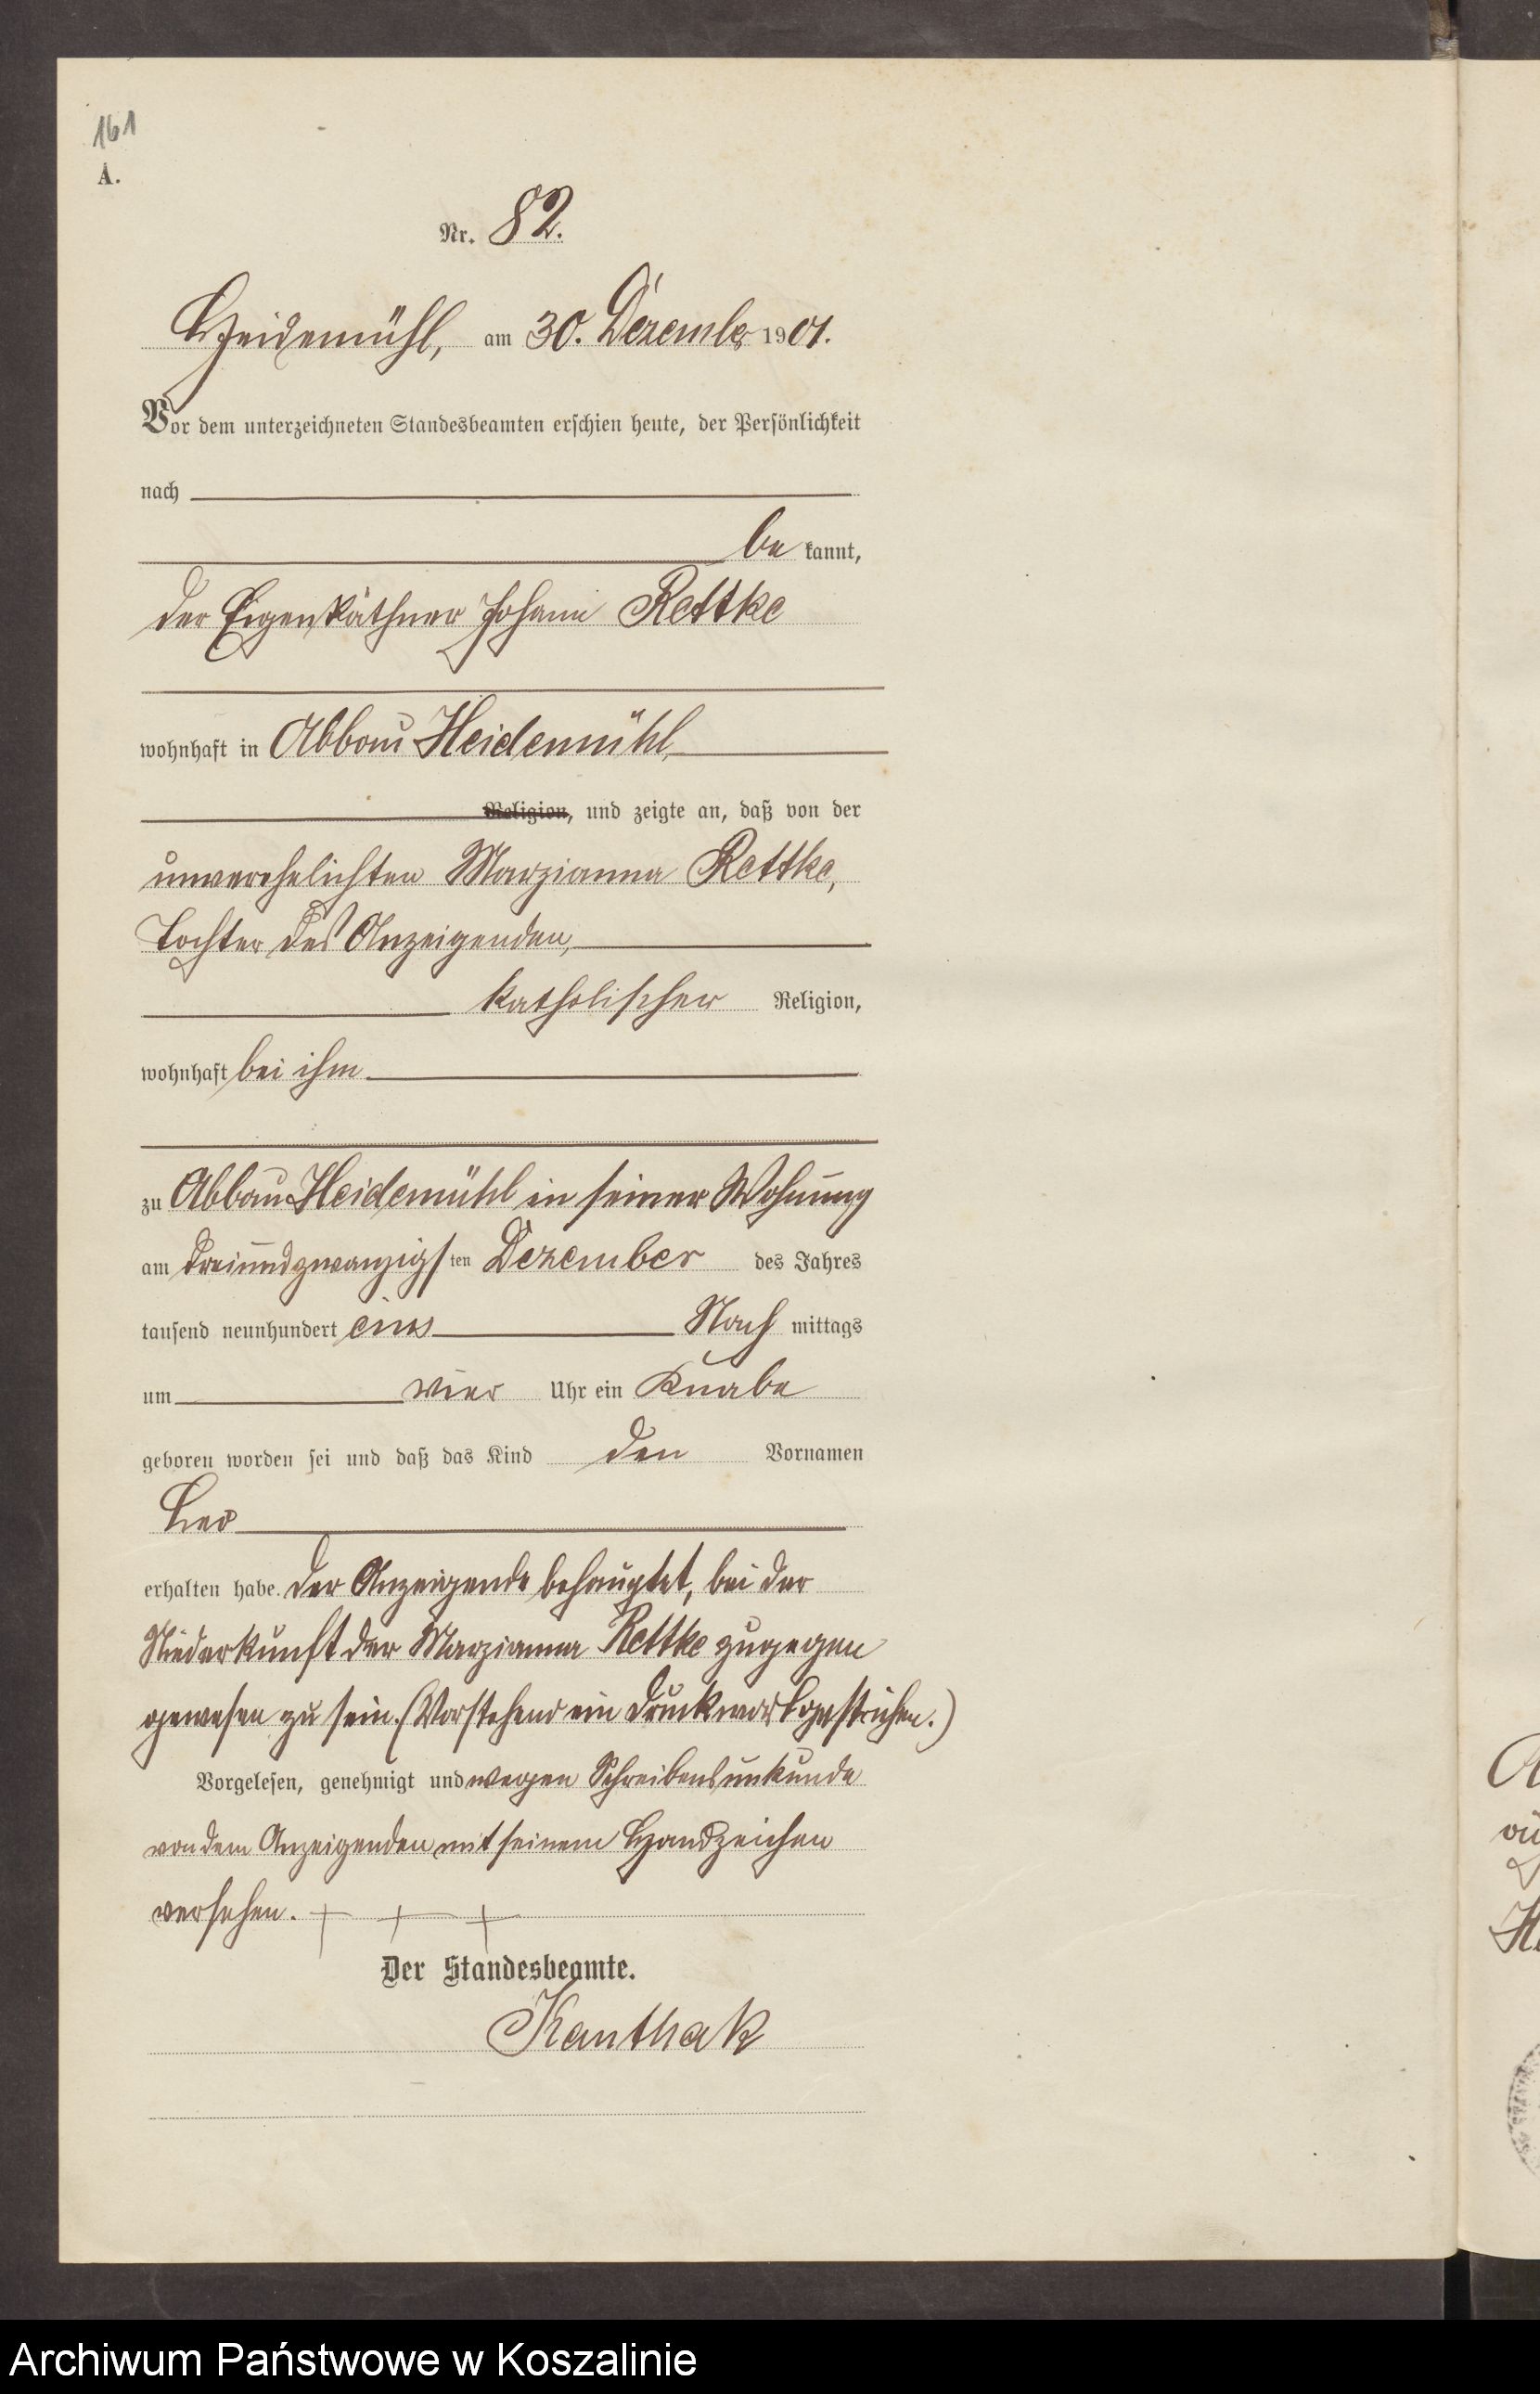 161
A.
Nr. 82.
Heidemühl, am 30. Dezember 1901.
Vor dem unterzeichneten Standesbeamten erschien heute, der Persönlichkeit
nach
be kannt,
der Eigenkäthner Johann Rettke
wohnhaft in Abbau Heidemühl,
Religion, und zeigte an, daß von der
unverehelichten Marzianna Rettke,
Tochter des Anzeigenden,
katholischer Religion,
wohnhaft bei ihm
zu Abbau Heidemühl in seiner Wohnung
am dreiundzwanzigsten Dezember des Jahres
tausend neunhundert eins Nach mittags
um vier Uhr ein Knabe
geboren worden sei und daß das Kind den Vornamen
Leo
erhalten habe. Der Anzeigende behauptet, bei der
Niederkunft der Marzianna Rettke zugegen
gewesen zu sein. (Vorstehend ein Druckwort gestrichen.)
Vorgelesen, genehmigt und wegen Schreibensunkunde
von dem Anzeigenden mit seinem Handzeichen
versehen. + + +
Der Standesbeamte.
Kanthak
Archiwum Państwowe w Koszalinie